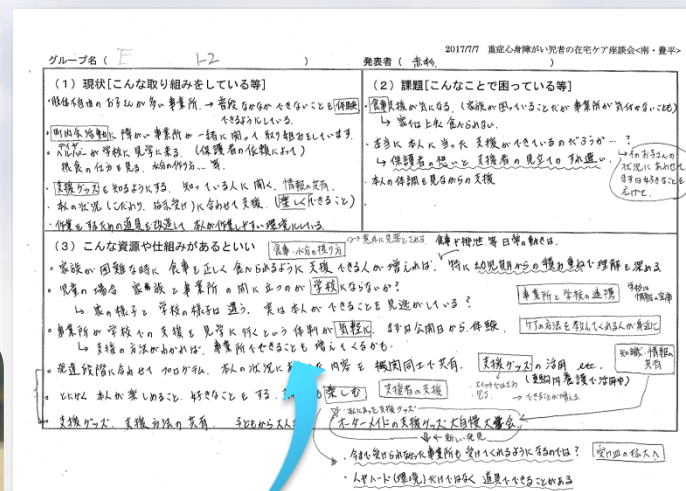 2017/7/7 重症心身障がい児者の在宅ケア座談会<南・豊平>
グループ名( E 1-2 )
発表者( )
(1)現状[こんな取り組みをしている等]
・肢体不自由のお子さんが多い事業所。→普段なかなかできないことを体験
できるようにしている。
・町内会活動に障がい事業所が一緒に関って取り組みをしています。
・ヘルパーが学校に見学に来る (保護者の依頼によって)
の仕方を見る、水分の作り方…等。
・支援グッズを知るようにする。知っている人に聞く。情報の共有。
・本人の状況(こだわり、)に合わせて支援。(楽しくできること)
・作業をするための道具を改造して本人が作業しやすい環境にしている。
(2)課題[こんなことで困っている等]
・食事支援が気になる。(家族が困っていることだが事業所が気付かないことも)
↳家では上手く食べられない。
・本当に本人に合った支援ができているのだろうか…?
↳保護者の想いと支援者の見立てのずれ違い。
・本人の体調を見ながらの支援
→そのお子さんの
状況にあわせて
まずは好きなことを
広げて。
(3)こんな資源や仕組みがあるといい
食事・水分の摂り方
→意外に見落とされる 食事や排泄等日常の動きは、
・家族が困難な時に食事を正しく食べられるように支援できる人が増えれば。特に幼児期からの積み重ねで理解を深める
・児童の場合 家族と事業所の間に立つのが学校にならないか?
↳家の様子と学校の様子は違う。実は本人ができることを見逃がしている?
事業所と学校の連携
学校は情報の宝庫
・事業所が学校での支援を見学に行くという体制が気軽に。まず公開日から体験。
ケアの方法を教えてくれる人が身近に
↳支援の方法がわかれば、事業所でできることも増えてくるかも。
・発達段階に合わせてプログラム、本人の状況に 内容を機関同士で共有。
支援グッズの活用 etc.
知識・情報の共有
・とにかく本人が楽しめること、好きなことをする。 も楽しむ
支援者の支援
(重騎内養護で活用中)
→できることが増える
・支援グッズ、支援方法の共有。子どもから大人
本人にあった支援グッズ
オーダーメイドの支援グッズ大自慢大会
←新しい発見
・今まで受けられなかった事業所も受けてくれるようになるのでは?
受け皿の拡大へ
・人やハード(環境)だけではなく道具でできることがある